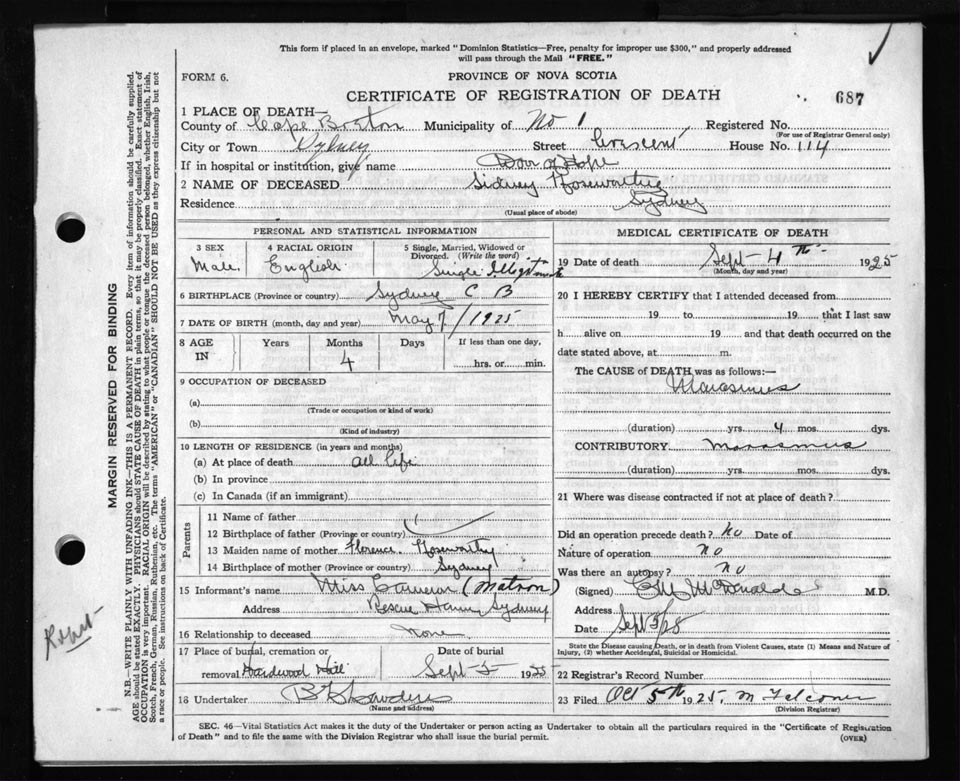 This form if placed in an envelope, marked "Dominion Statistics—Free, penalty for improper use $300," and properly addressed
will pass through the Mail "FREE."
FORM 6.
PROVINCE OF NOVA SCOTIA
CERTIFICATE OF REGISTRATION OF DEATH
687
1 PLACE OF DEATH—
County of Cape Breton Municipality of No 1 Registered No.
(For use of Registrar General only)
City or Town Sydney Street Crescent House No. 114
If in hospital or institution, give name Door of Hope
2 NAME OF DECEASED Sidney Noseworthy
Residence Sydney
(Usual place of abode)
PERSONAL AND STATISTICAL INFORMATION
3 SEX 4 RACIAL ORIGIN 5 Single, Married, Widowed or
Divorced. (Write the word)
Male English Single
6 BIRTHPLACE (Province or country) Sydney C B
7 DATE OF BIRTH (month, day and year) May 7/1925
8 AGE IN Years Months Days If less than one day,
4 hrs. or min.
9 OCCUPATION OF DECEASED
(a)
(Trade or occupation or kind of work)
(b)
(Kind of industry)
10 LENGTH OF RESIDENCE (in years and months)
(a) At place of death all life
(b) In province
(c) In Canada (if an immigrant)
Parents
11 Name of father
12 Birthplace of father (Province or country)
13 Maiden name of mother Florence Noseworthy
14 Birthplace of mother (Province or country) Sydney
15 Informant's name Miss Cameron (Matron)
Address Rescue Home, Sydney
16 Relationship to deceased None
17 Place of burial, cremation or Date of burial
removal Hardwood Hill Sept 5 1925
18 Undertaker
(Name and address)
MEDICAL CERTIFICATE OF DEATH
19 Date of death Sept 4th 1925
(Month, day and year)
20 I HEREBY CERTIFY that I attended deceased from
19 to 19 , that I last saw
h alive on 19 and that death occurred on the
date stated above, at m.
The CAUSE of DEATH was as follows:—
Marasmus
(duration) yrs. 4 mos. dys.
CONTRIBUTORY. Marasmus
(duration) yrs. mos. dys.
21 Where was disease contracted if not at place of death?
Did an operation precede death? No Date of
Nature of operation No
Was there an autopsy? No
(Signed) McDonald M.D.
Address
Date
State the Disease causing Death, or in death from Violent Causes, state (1) Means and Nature of
Injury, (2) whether Accidental, Suicidal or Homicidal.
22 Registrar's Record Number
23 Filed Oct 5th 1925, M Falconer
(Division Registrar)
SEC. 46—Vital Statistics Act makes it the duty of the Undertaker or person acting as Undertaker to obtain all the particulars required in the "Certificate of Registration
of Death" and to file the same with the Division Registrar who shall issue the burial permit.
(OVER)
MARGIN RESERVED FOR BINDING
N.B.—WRITE PLAINLY WITH UNFADING INK—THIS IS A PERMANENT RECORD. Every item of information should be carefully supplied.
AGE should be stated EXACTLY. PHYSICIANS should STATE CAUSE OF DEATH in plain terms, so that it may be properly classified. Exact statement of
OCCUPATION is very important. RACIAL ORIGIN will be described by stating to what people or tongue the deceased person belonged, whether English, Irish,
Scotch, French, German, Russian, Ruthenian, etc. The terms "AMERICAN" or "CANADIAN" SHOULD NOT BE USED as they express citizenship but not
a race or people. See instructions on back of Certificate.